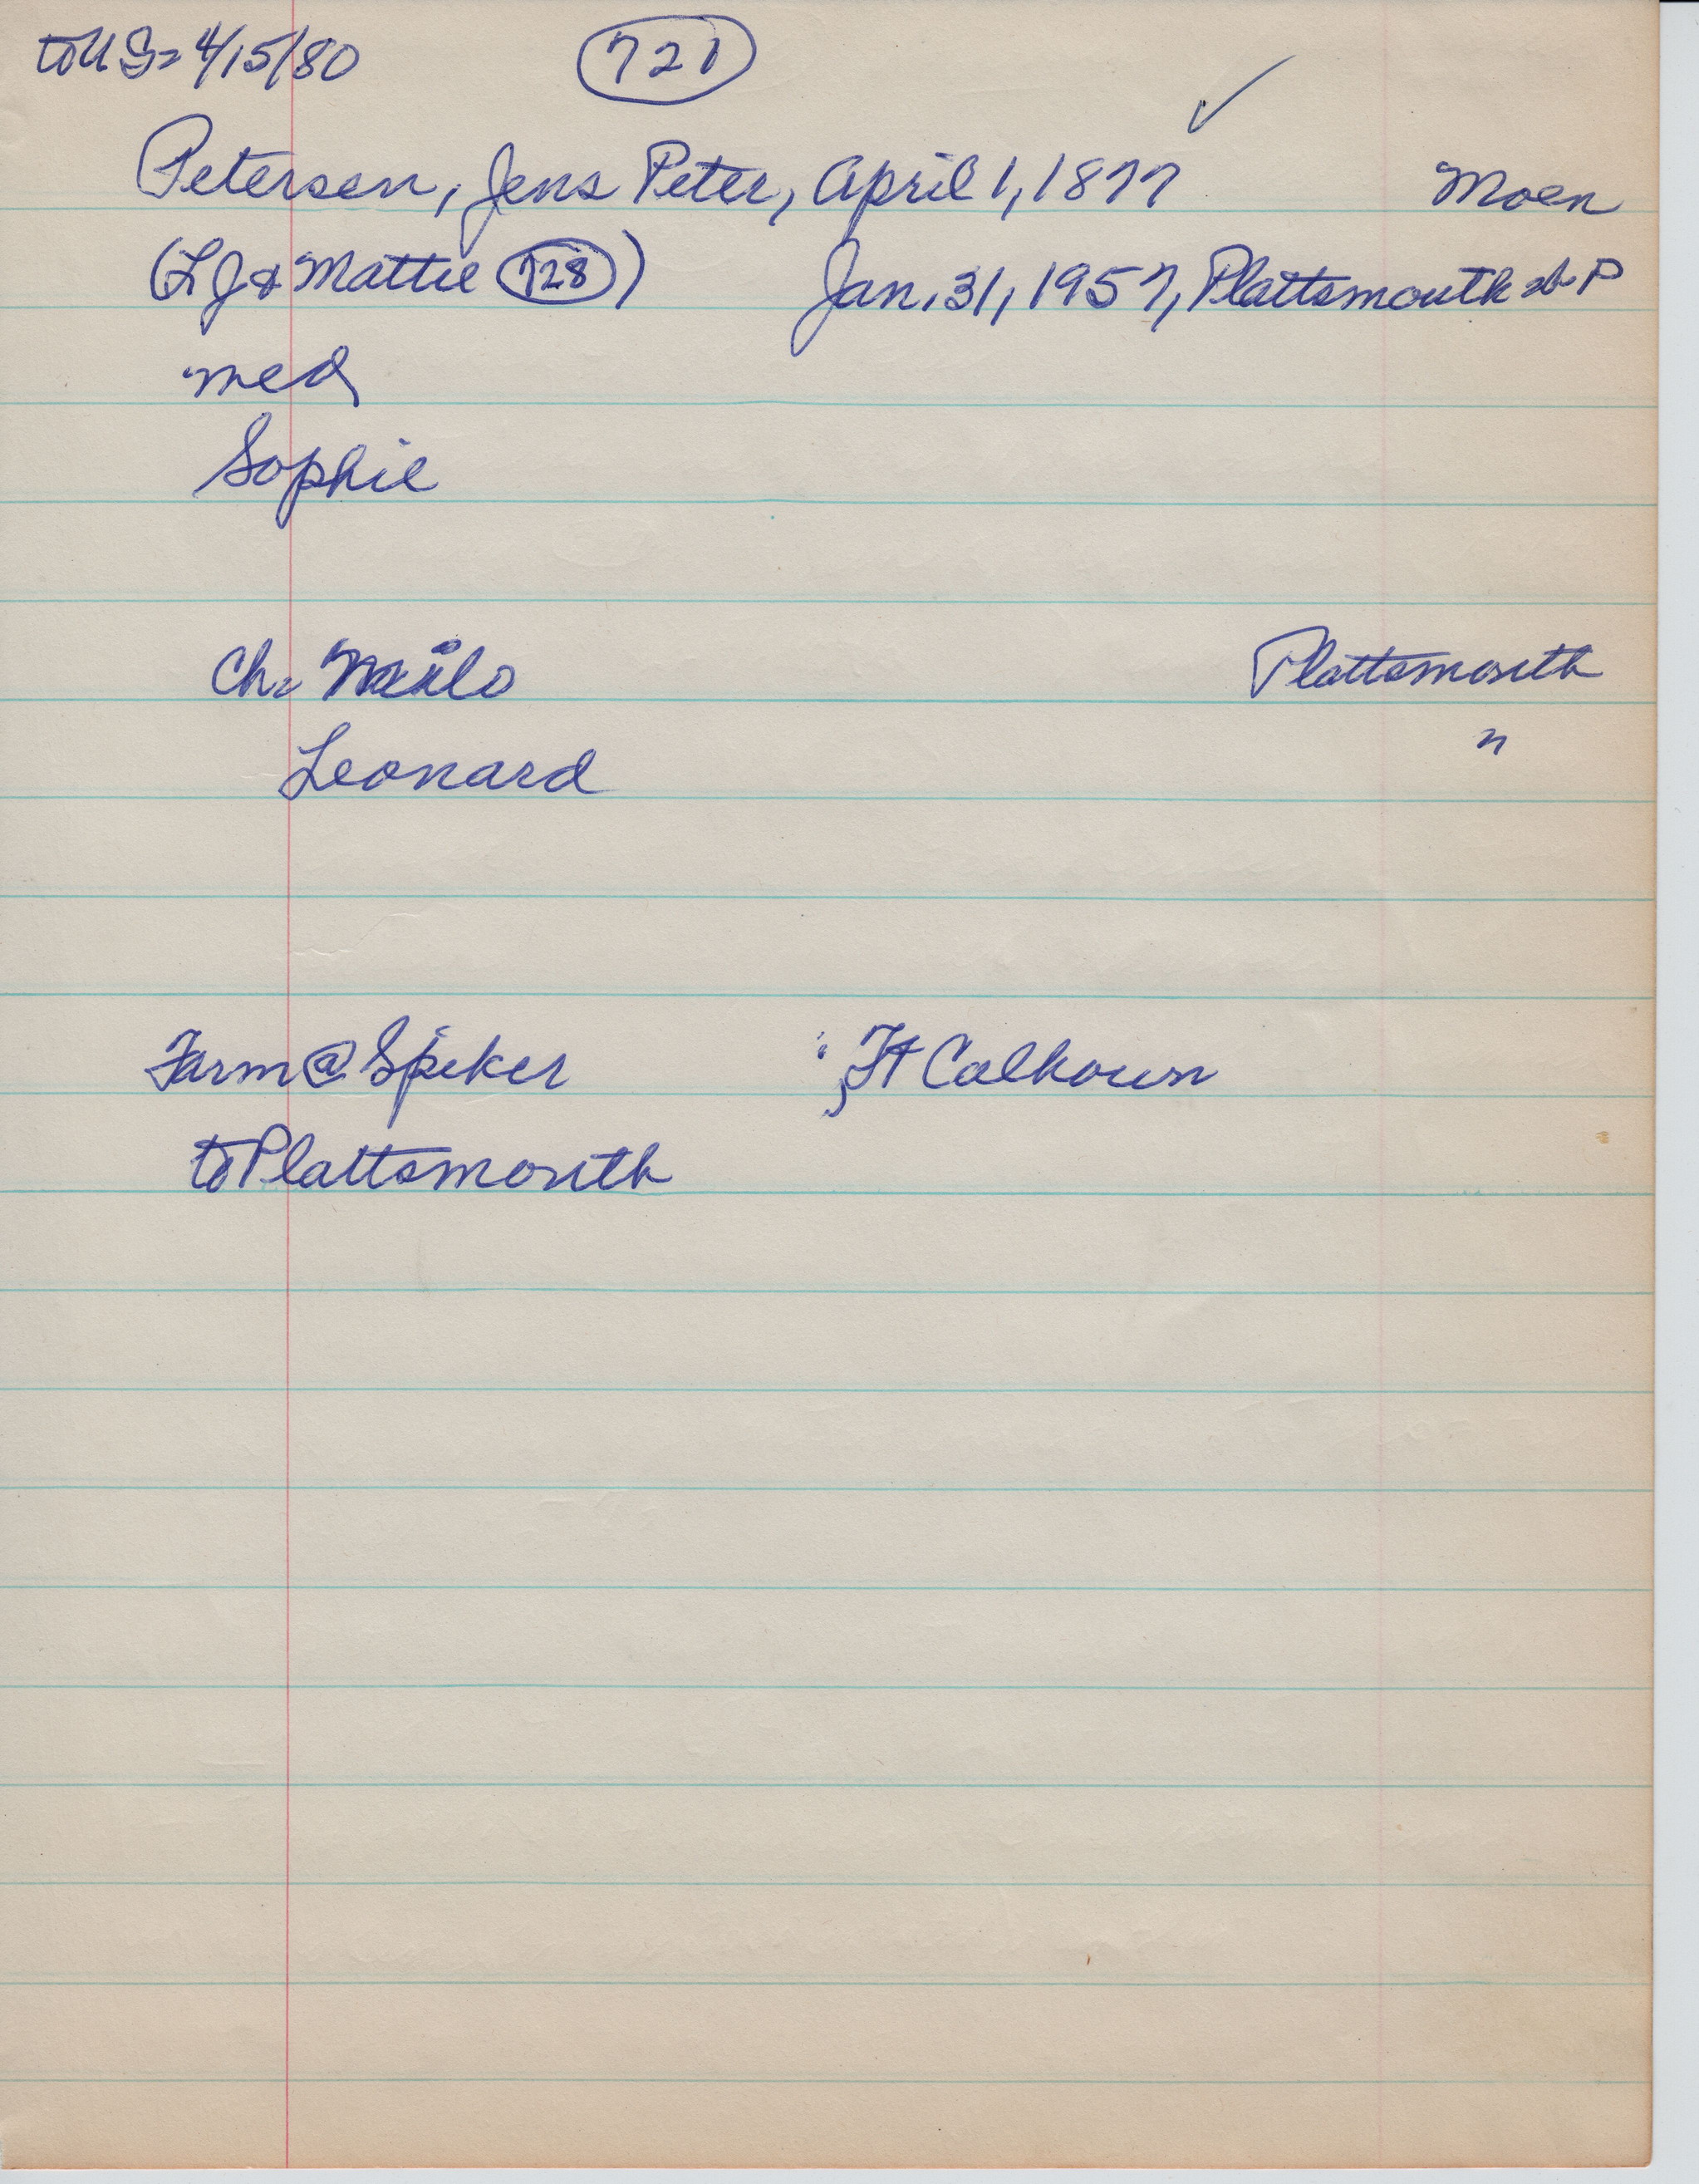 to US= 4/15/80 721
Petersen, Jens Peter, April 1, 1877 ✓ Moen
(LJ & Mattie 728) Jan. 31, 1957, Plattsmouth
med
Sophie
Ch: Milo Plattsmouth
Leonard "
Farm @ Spiker ; Ft Calhoun
to Plattsmouth